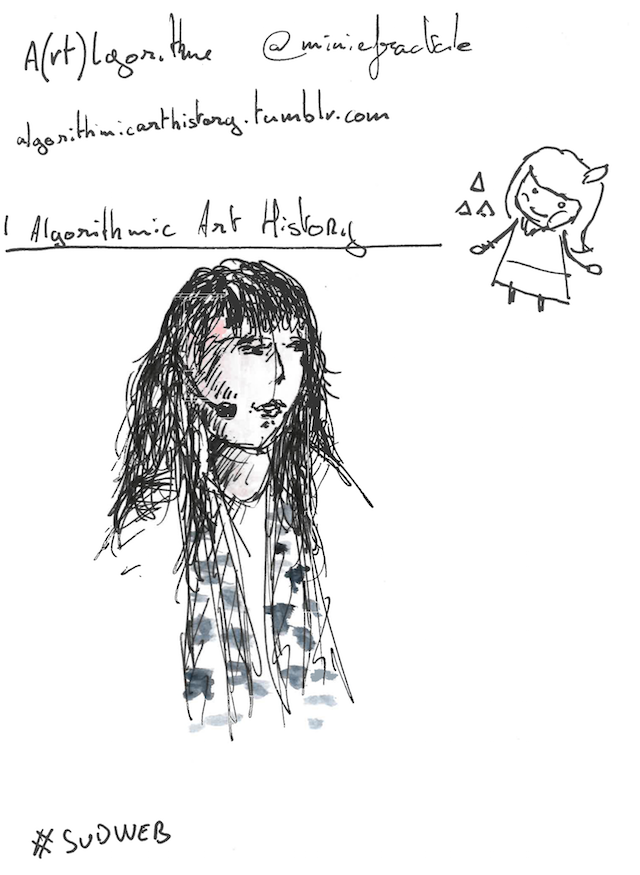 A(rt)lgorithme @miniefractale
algorithmicarthistory.tumblr.com
Algorithmic Art History
#SUDWEB